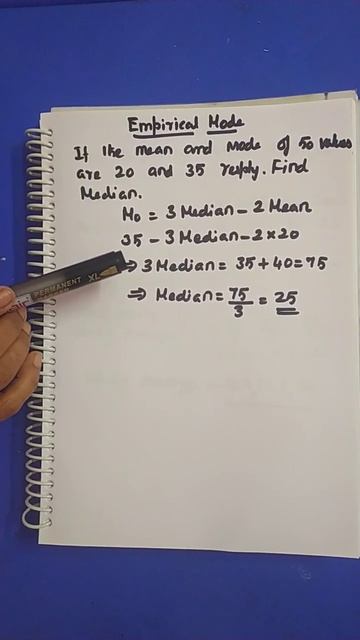 Empirical Mode
If the mean and mode of 50 values
are 20 and 35 resply. Find
Median.
Mo = 3 Median - 2 Mean
35 - 3 Median - 2 x 20
⇒ 3 Median = 35 + 40 = 75
⇒ Median = 75/3 = 25
PERMANENT XL